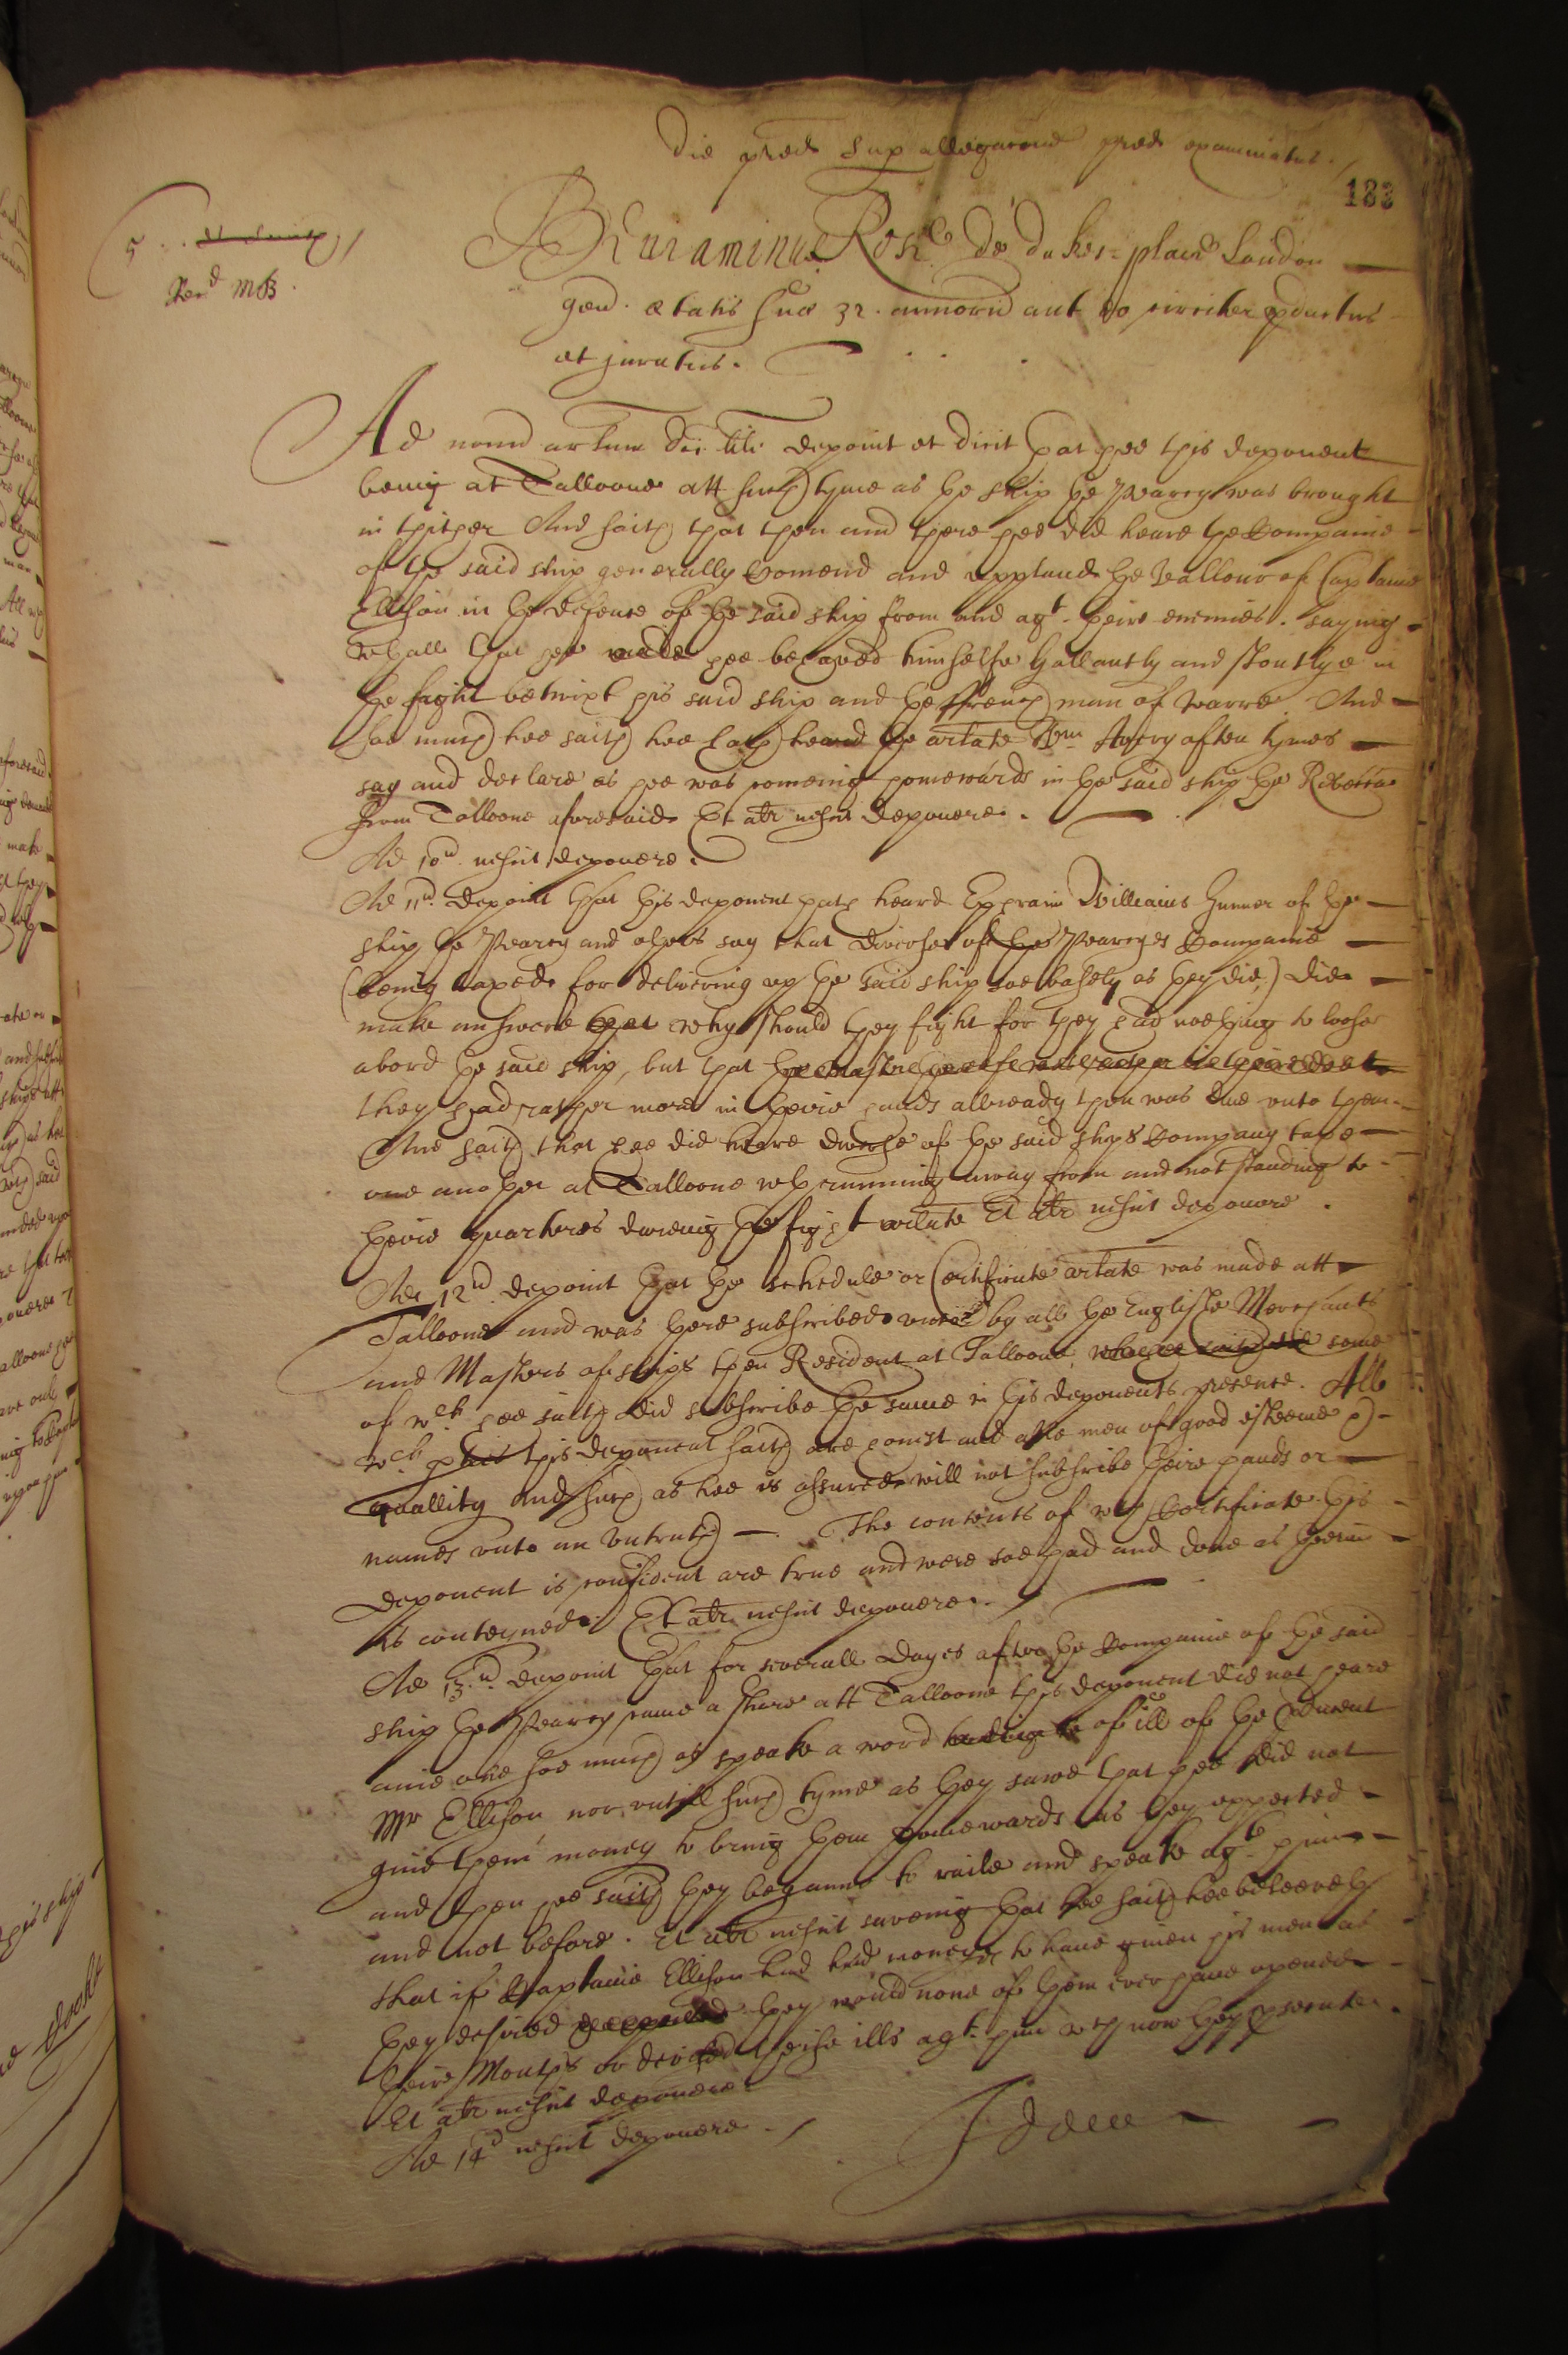 die pred sup allegacone pred examinatus.
183
5 . . 
Rend MB.
Beniaminus Rose de dukes place London
gen. ætatis suæ 32. annorum aut eo circiter productus
et juratus.
Ad nonum artum dci libi deponit et dicit that hee this deponent
being at Talloone att such tyme as the ship the Pearcy was brought
in thither And saith that then and there hee did heare the Companie
of the said ship generally Comend and applaud the vallour of Captaine
Ellison in the defence of the said ship from and agt. theire enemies. saying
withall that hee behaved himselfe gallantly and stoutlye in
the fight betwixt his said ship and the ffrench man of warre. And
soe much hee saith hee hath heard the artate Avery often tymes
say and declare as hee was comeing homewards in the said ship the Rebecca
from Talloone aforesaid Et atr nescit deponere.
Ad 10um. nescit deponere.
Ad 11um. deponit that this deponent hath heard Ephraim Williams Gunner of the
ship the Pearcy and others say that diverse of the Pearcyes Companie
(being taxed for delivering up the said ship soe basely as they did,) did
make answere that why should they fight for they had nothing to loose
abord the said ship, but that
they had rather more in theire hands allready then was due unto them.
And saith that hee did heare diverse of the said ships Company taxe
one another at Talloone wth running away from and not standing to
theire quarteres dureing the fight artate Et atr nescit deponere.
Ad 12um. deponit that the schedule or Certificate artate was made att
Talloone and was there subscribed unto by all the Englishe Merchants
and Masters of ships then Resident at Talloone, some
of wch hee saith did subscribe the same in this deponents presence. All
wch this deponent saith are honest and able men of good esteeme &
quallity And such as hee is assured will not subscribe theire hands or
names unto an untruth. The contents of wch Certificate this
deponent is confident are true and were soe had and done as therin
is conteyned. Et atr nescit deponere.
Ad 13um. deponit that for severall dayes after the Companie of the said
ship the Pearcy came a shore att Talloone this deponent did not heare
anie one soe much as speake a word of ill of the
Mr Ellison nor untill such tyme as they sawe that hee did not
give them money to bring them homewards as they expected
and then hee saith they beganne to raile and speake agt. him
and not before. Et atr nescit saveing that hee saith hee beleeveth
that if Captaine Ellison had had moneye to have given his men as
they desired they would none of them ever have opened
theire Mouths or devised theise ills agt. him wch now they prosecute.
Et atr nescit deponere.
Ad 14um nescit deponere.
Idem